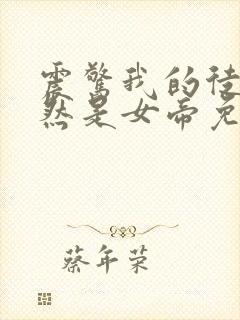 震惊我的徒
然是女帝免
蔡年荣